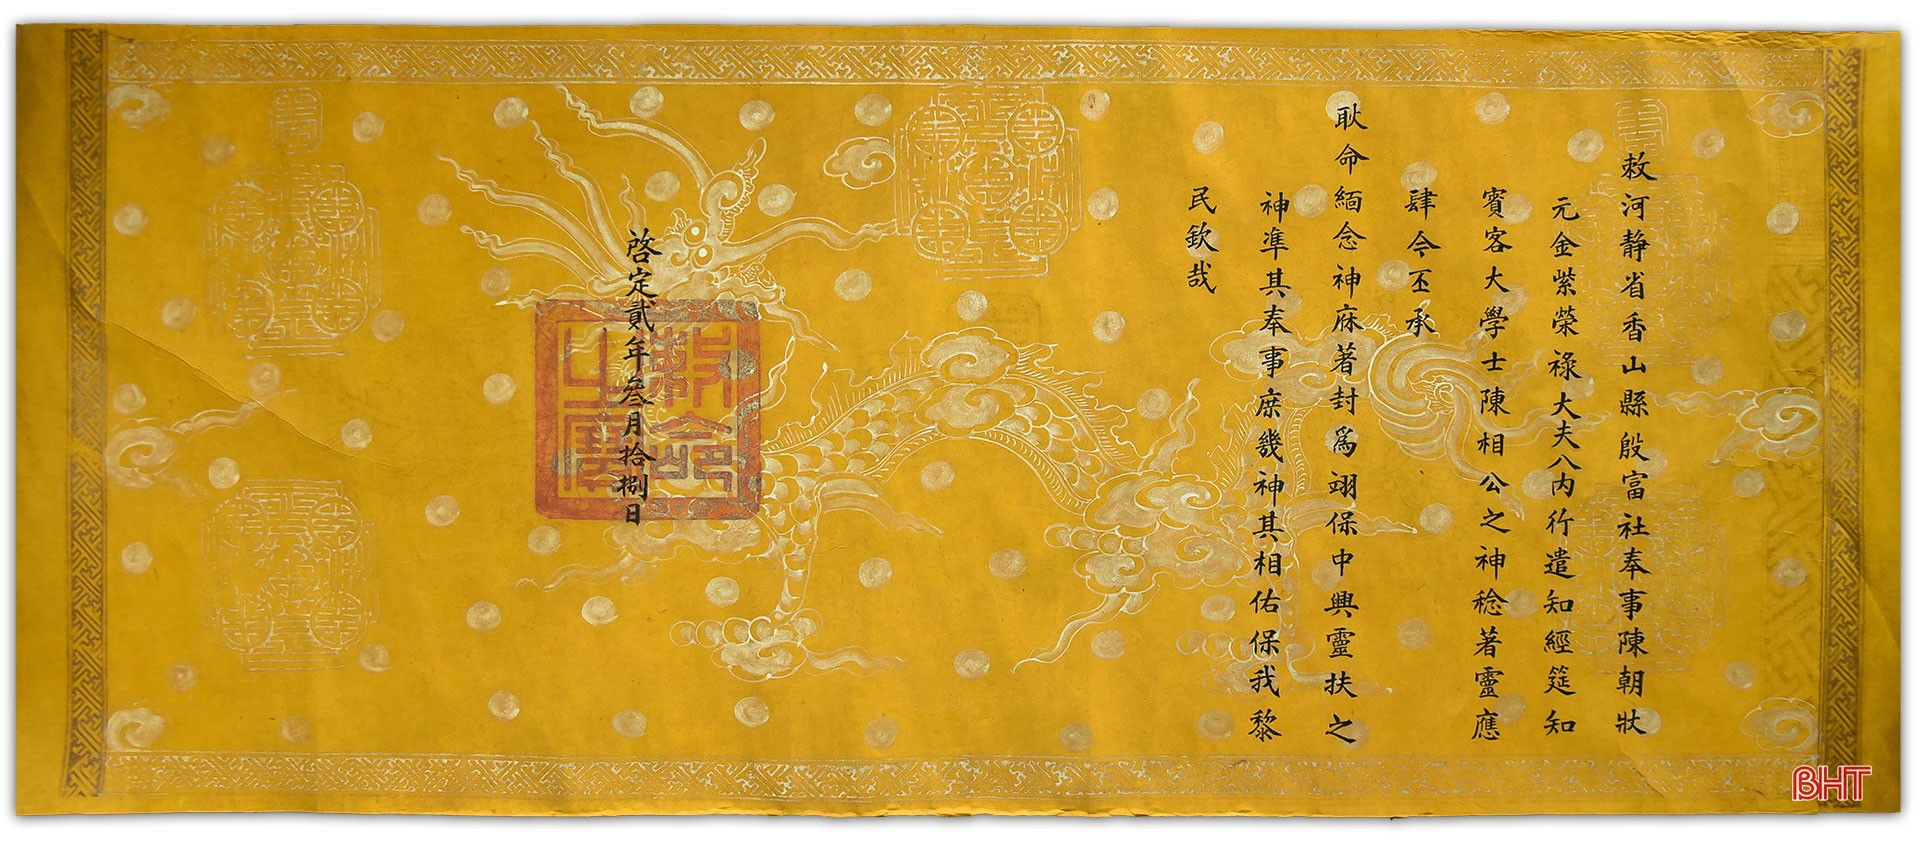 敕河靜省香山縣殷富社奉事陳朝狀
元金紫榮祿大夫入内行遣知經筵知
賓客大學士陳相公之神稔著靈應
肆今丕承
耿命緬念神庥著封爲翊保中興靈扶之
神準其奉事庶幾神其相佑保我黎
民欽哉
啓定貳年叁月拾捌日
敕命之寶
BHT